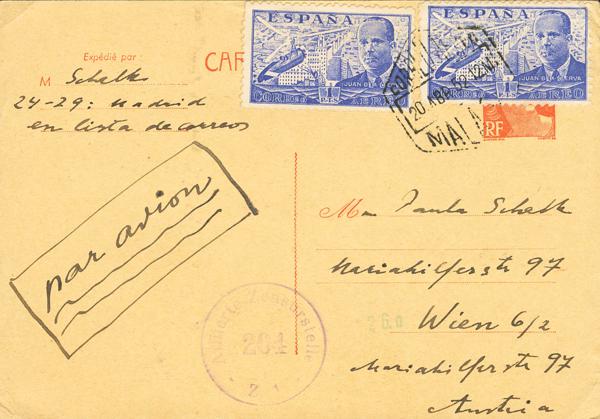 ESPAÑA
JUAN DE LA CIERVA
1 PTS
CORREO AEREO
ESPAÑA
JUAN DE LA CIERVA
1 PTS
CORREO AEREO
Expédié par :
CAR
M Schalk
24-29: Madrid
en lista de correos
20 ABR
MALA
RF
par avion
Mme Paula Schalk
Mariahilferstr 97
Wien 6/2
Mariahilferstr 97
Austria
260
Alliierte Zensurstelle
204
Z